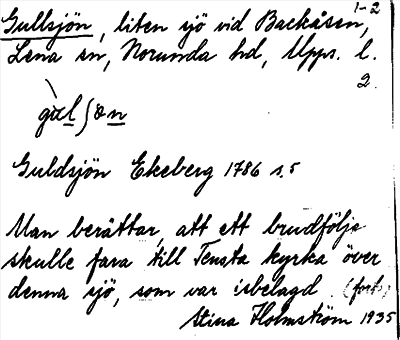 1-2
Gullsjön, liten sjö vid Backåsen,
Lena sn, Norunda hd, Upps. l.
2.
Guldsjön Ekeberg 1786 s. 5
Man berättar, att ett brudfölje
skulle fara till Tensta kyrka över
denna sjö, som var isbelagd. (forts.)
Stina Holmström 1935